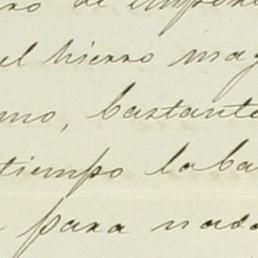 ro de impor
el hierro mag
mo, bastante
tiempo loba
para nada